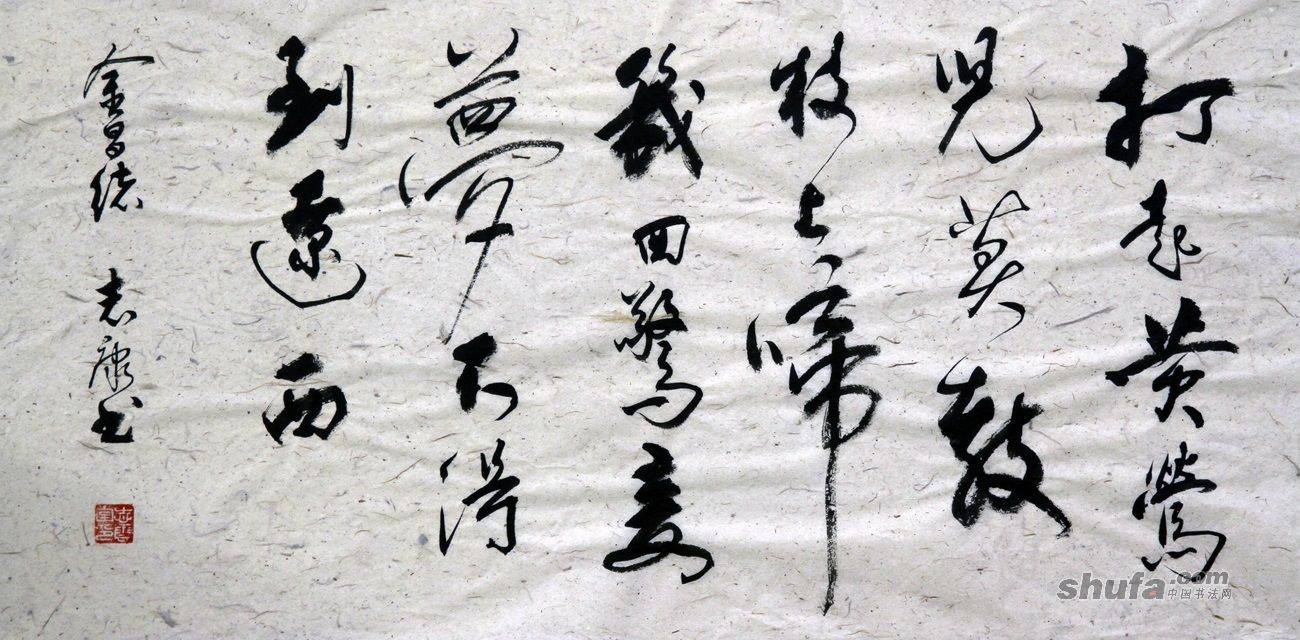 打起黄鶯
児莫教
枝上啼
幾回驚妾
夢不得
到遼西
金昌绪 志康书
shufa.com
中国书法网